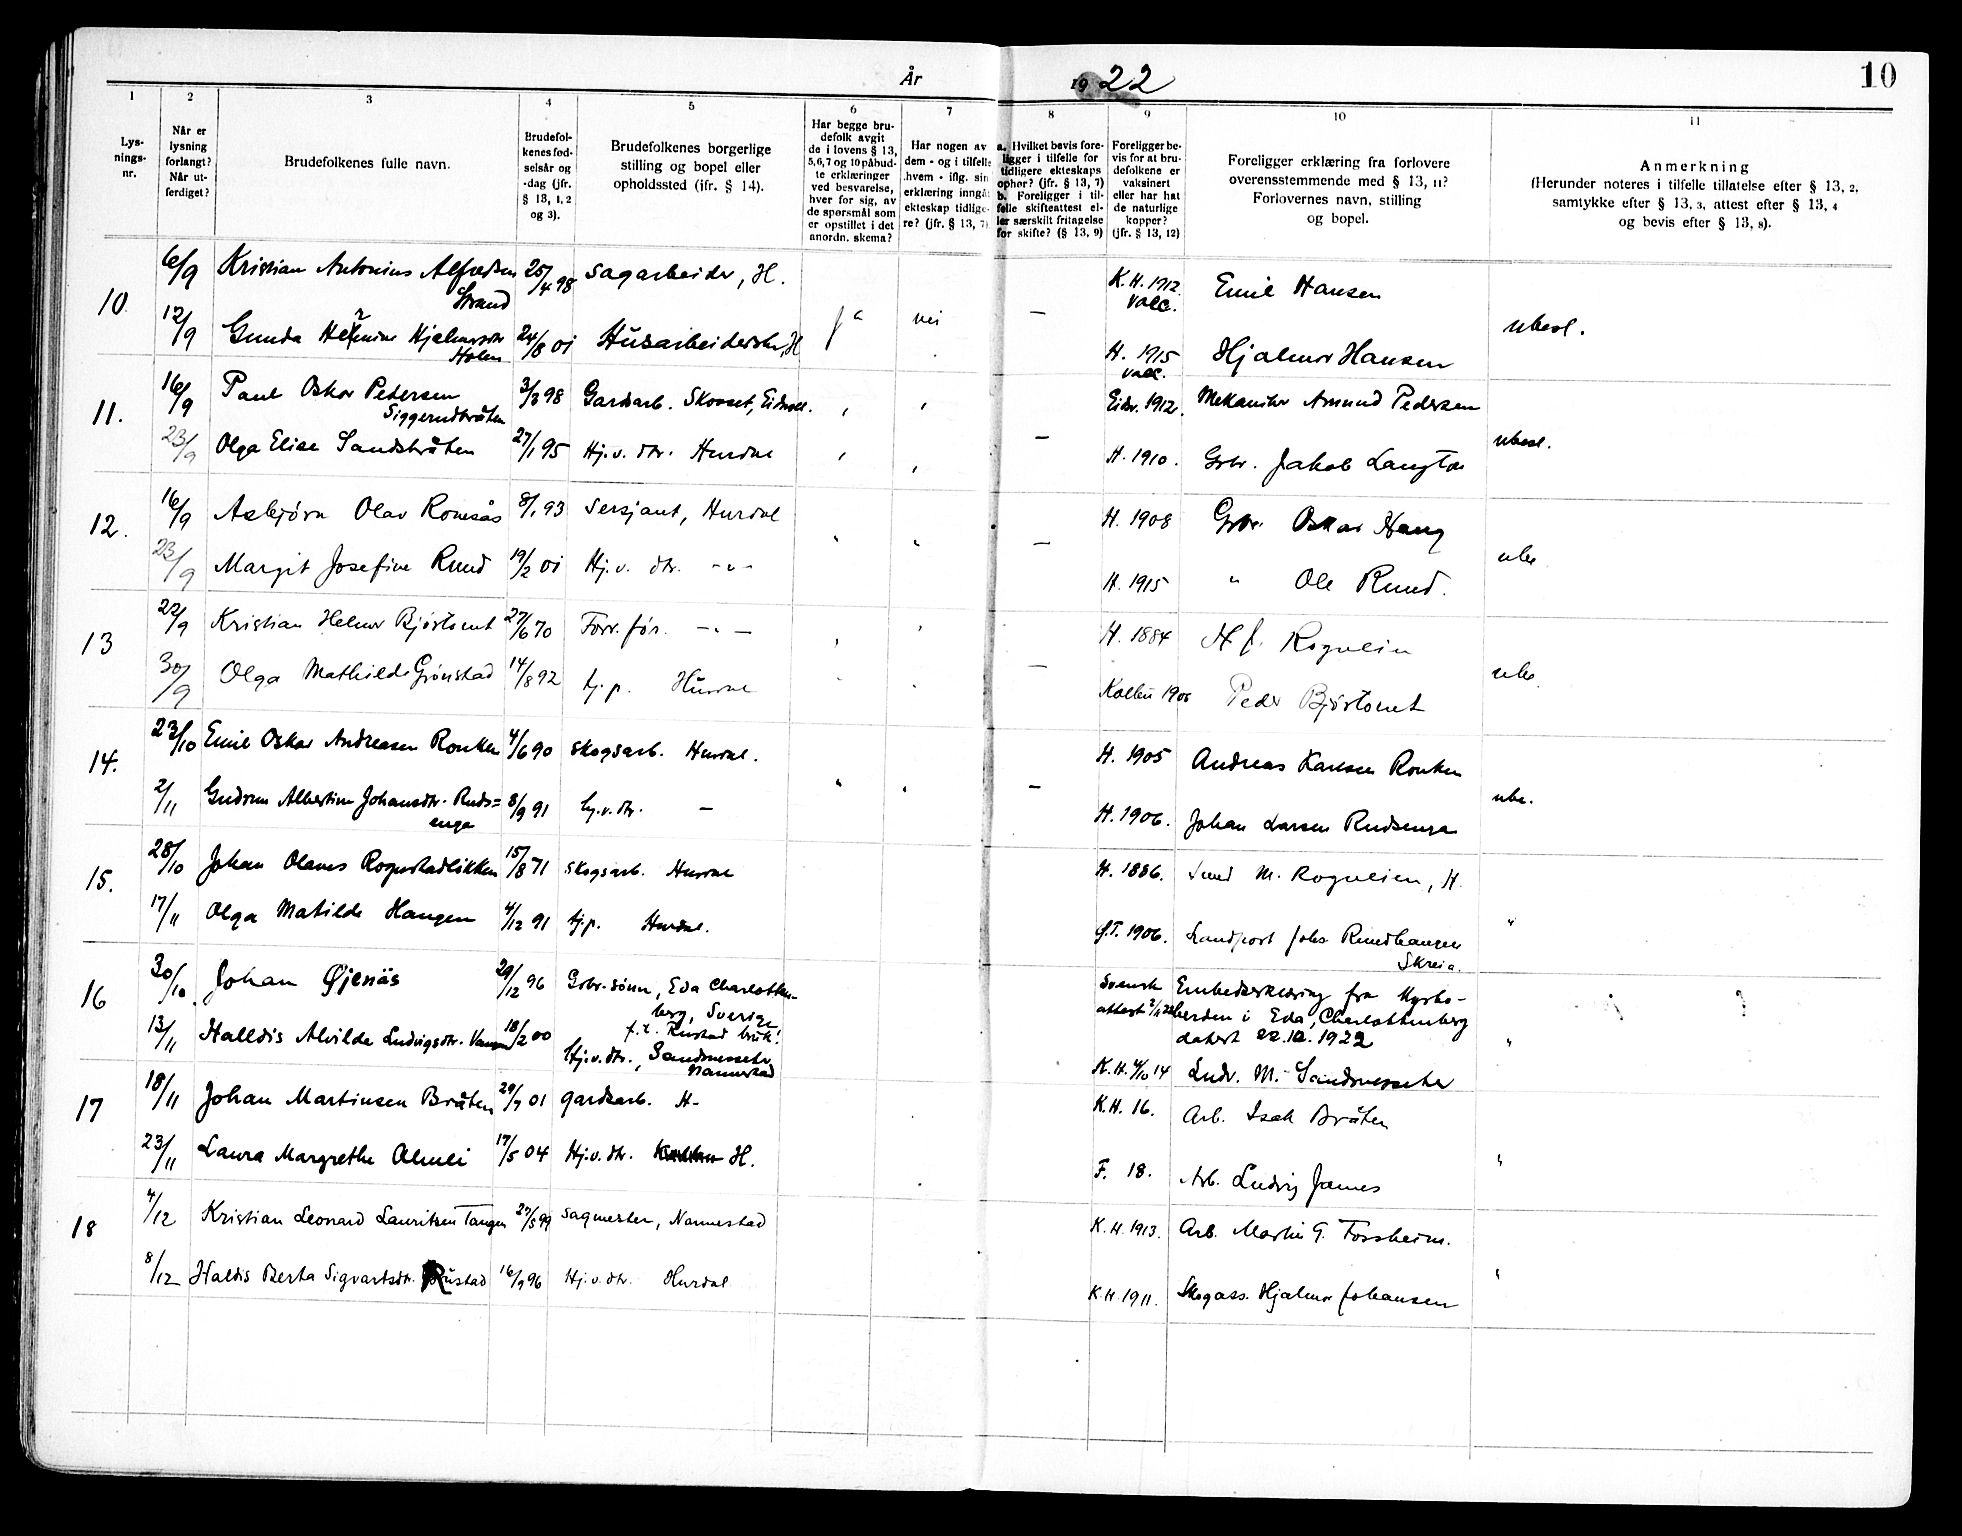 År 1922 10
1 2 3 4 5 6 7 8 9 10 11
Lys-
nings-
nr.
Når er
lysning
forlangt?
Når ut-
ferdiget?
Brudefolkenes fulle navn.
Brudefol-
kenes fød-
selsår og
-dag (jfr.
§ 13, 1, 2
og 3).
Brudefolkenes borgerlige
stilling og bopel eller
opholdssted (ifr. § 14).
Har begge bru-
defolk avgit
de i lovens § 13,
5, 6, 7 og 10 påbud-
te erklæringer
ved besvarelse,
hver for sig, av
de spørsmål som
er opstillet i det
anordn. skema?
Har nogen av
dem - og i tilfelle
hvem - iflg. sin
erklæring inngåt
ekteskap tidlige-
re? (jfr. § 13, 7)
a. Hvilket bevis fore-
ligger i tilfelle for
tidligere ekteskaps
ophør? (jfr. § 13, 7)
b. Foreligger i til-
felle skifteattest el-
ler særskilt fritagelse
for skifte? (§ 13, 9)
Foreligger be-
vis for at bru-
defolkene er
vaksinert
eller har hat
de naturlige
kopper?
(jfr. § 13, 12)
Foreligger erklæring fra forlovere
overensstemmende med § 13, 11?
Forlovernes navn, stilling
og bopel.
Anmerkning
(Herunder noteres i tilfelle tillatelse efter § 13, 2,
samtykke efter § 13, 3, attest efter § 13, 4
og bevis efter § 13, 8).
10. 6/9 Kristian Antonius Alfredsen 25/4 98 Sagarbeider, H. K.H. 1912. Emil Hansen
Strand vacc.
12/9 Gunda Hermine Hjalmarsdtr 24/8 01 Husarbeiderske, H ja nei — H. 1915 Hjalmar Hansen ubesl.
Holen vacc.
11. 16/9 Paul Oskar Pedersen 3/3 98 Gardsarb. Skosset, Eidsvoll. Eidsv. 1912. Mekaniker Amund Pedersen
Siggerudbråten
23/9 Olga Elise Sandsbråten 27/1 95 Hj.v. dtr. Hurdal — H. 1910. Gbr. Jakob Langton ubesl.
12. 16/9 Asbjørn Olav Romsås 8/1 93 Sersjant, Hurdal H. 1908 Gbr. Oskar Haug
23/9 Margit Josefine Ruud 19/2 01 Hj.v. dtr. -"- " " — H. 1915 " Ole Ruud. ube
13 22/9 Kristian Helmer Bjørtomt 27/6 70 Forr.før. -"- H. 1884 H. J. Rognlein
30/9 Olga Mathilde Grønstad 14/8 92 tj.p. Hurdal — Kolbu 1906 Peder Bjørtomt ube.
14. 23/10 Emil Oskar Andreasen Ronken 4/6 90 Skogsarb. Hurdal. H. 1905 Andreas Karlsen Ronken
2/11 Gudrun Albertine Johansdtr. Ruds= 8/9 91 hj.v. dtr. — " — H. 1906. Johan Larsen Rudsenga ube.
enga
15. 28/10 Johan Olaves Rognstadlikken 15/8 71 Skogsarb. Hurdal H. 1886. M. Rognlien, H.
17/11 Olga Matilde Haugen 4/12 91 tj.p. Hurdal. Ø.T. 1906. Landpost Johs. Ruudhaugen "
Skreia.
16 30/10 Johan Øjenäs 29/12 96 Gbr.sønn, Eda Charlotten- Svensk Embedserklæring fra Kyrko-
berg, Sverige attest herden i Eda, Charlottenberg
f.t. Rustad bruk! datert 22.10.1922
13/11 Halldis Alvilda Ludvigsdtr. 18/2 00 Hj.v.dtr., Sandnesseter K.H. 4/10 14 Ludv. M. Sandnesseter "
Nannestad
17 18/11 Johan Martinsen Bråten 29/7 01 gardsarb. H- K.H. 16. Arb. Isak Bråten
23/11 Laura Margrethe Almli 17/5 04 Hj.v. dtr. H. F. 18. Arb. Ludvig James "
18 4/12 Kristian Leonard Lauritsen Tangen 27/5 99 Sagmester, Nannestad K.H. 1913. Arb. Martin G. Fossheim.
8/12 Haldis Berta Sigvartsdtr. Rustad 16/9 96 Hj.v. dtr. Hurdal K.H. 1911. Skogass. Hjalmar Johansen "